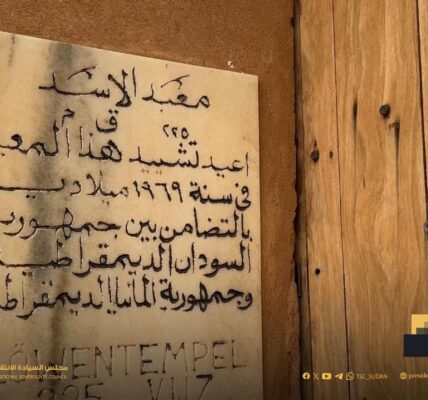 معبد الاسد
ق م
٢٢٥
اعيد تشييد هذا المعب
في سنة ١٩٦٩ ميلادي
بالتضامن بين جمهوري
السودان الديمقراطية
وجمهورية المانيا الديمقراط
LÖWENTEMPEL
225 V.U.Z
مجلس السيادة الانتق
SOVEREIGNTY COUNCIL
TSC_SUDAN
presid